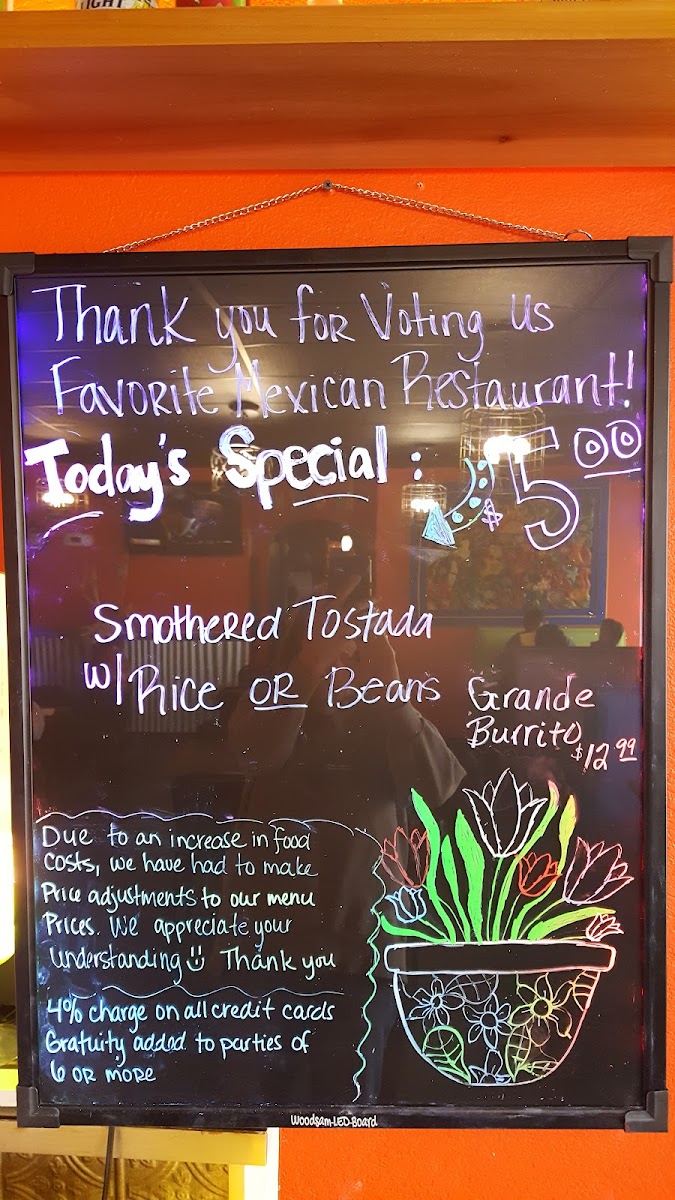 LIGHT
Thank you for Voting Us
Favorite Mexican Restaurant!
Today's Special: $5.00
Smothered Tostada
w/ Rice or Beans
Grande
Burrito
$12.99
Due to an increase in food
costs, we have had to make
Price adjustments to our menu
Prices. We appreciate your
Understanding Thank you
4% charge on all credit cards
Gratuity added to parties of
6 or more
Woodsam-LED-Board